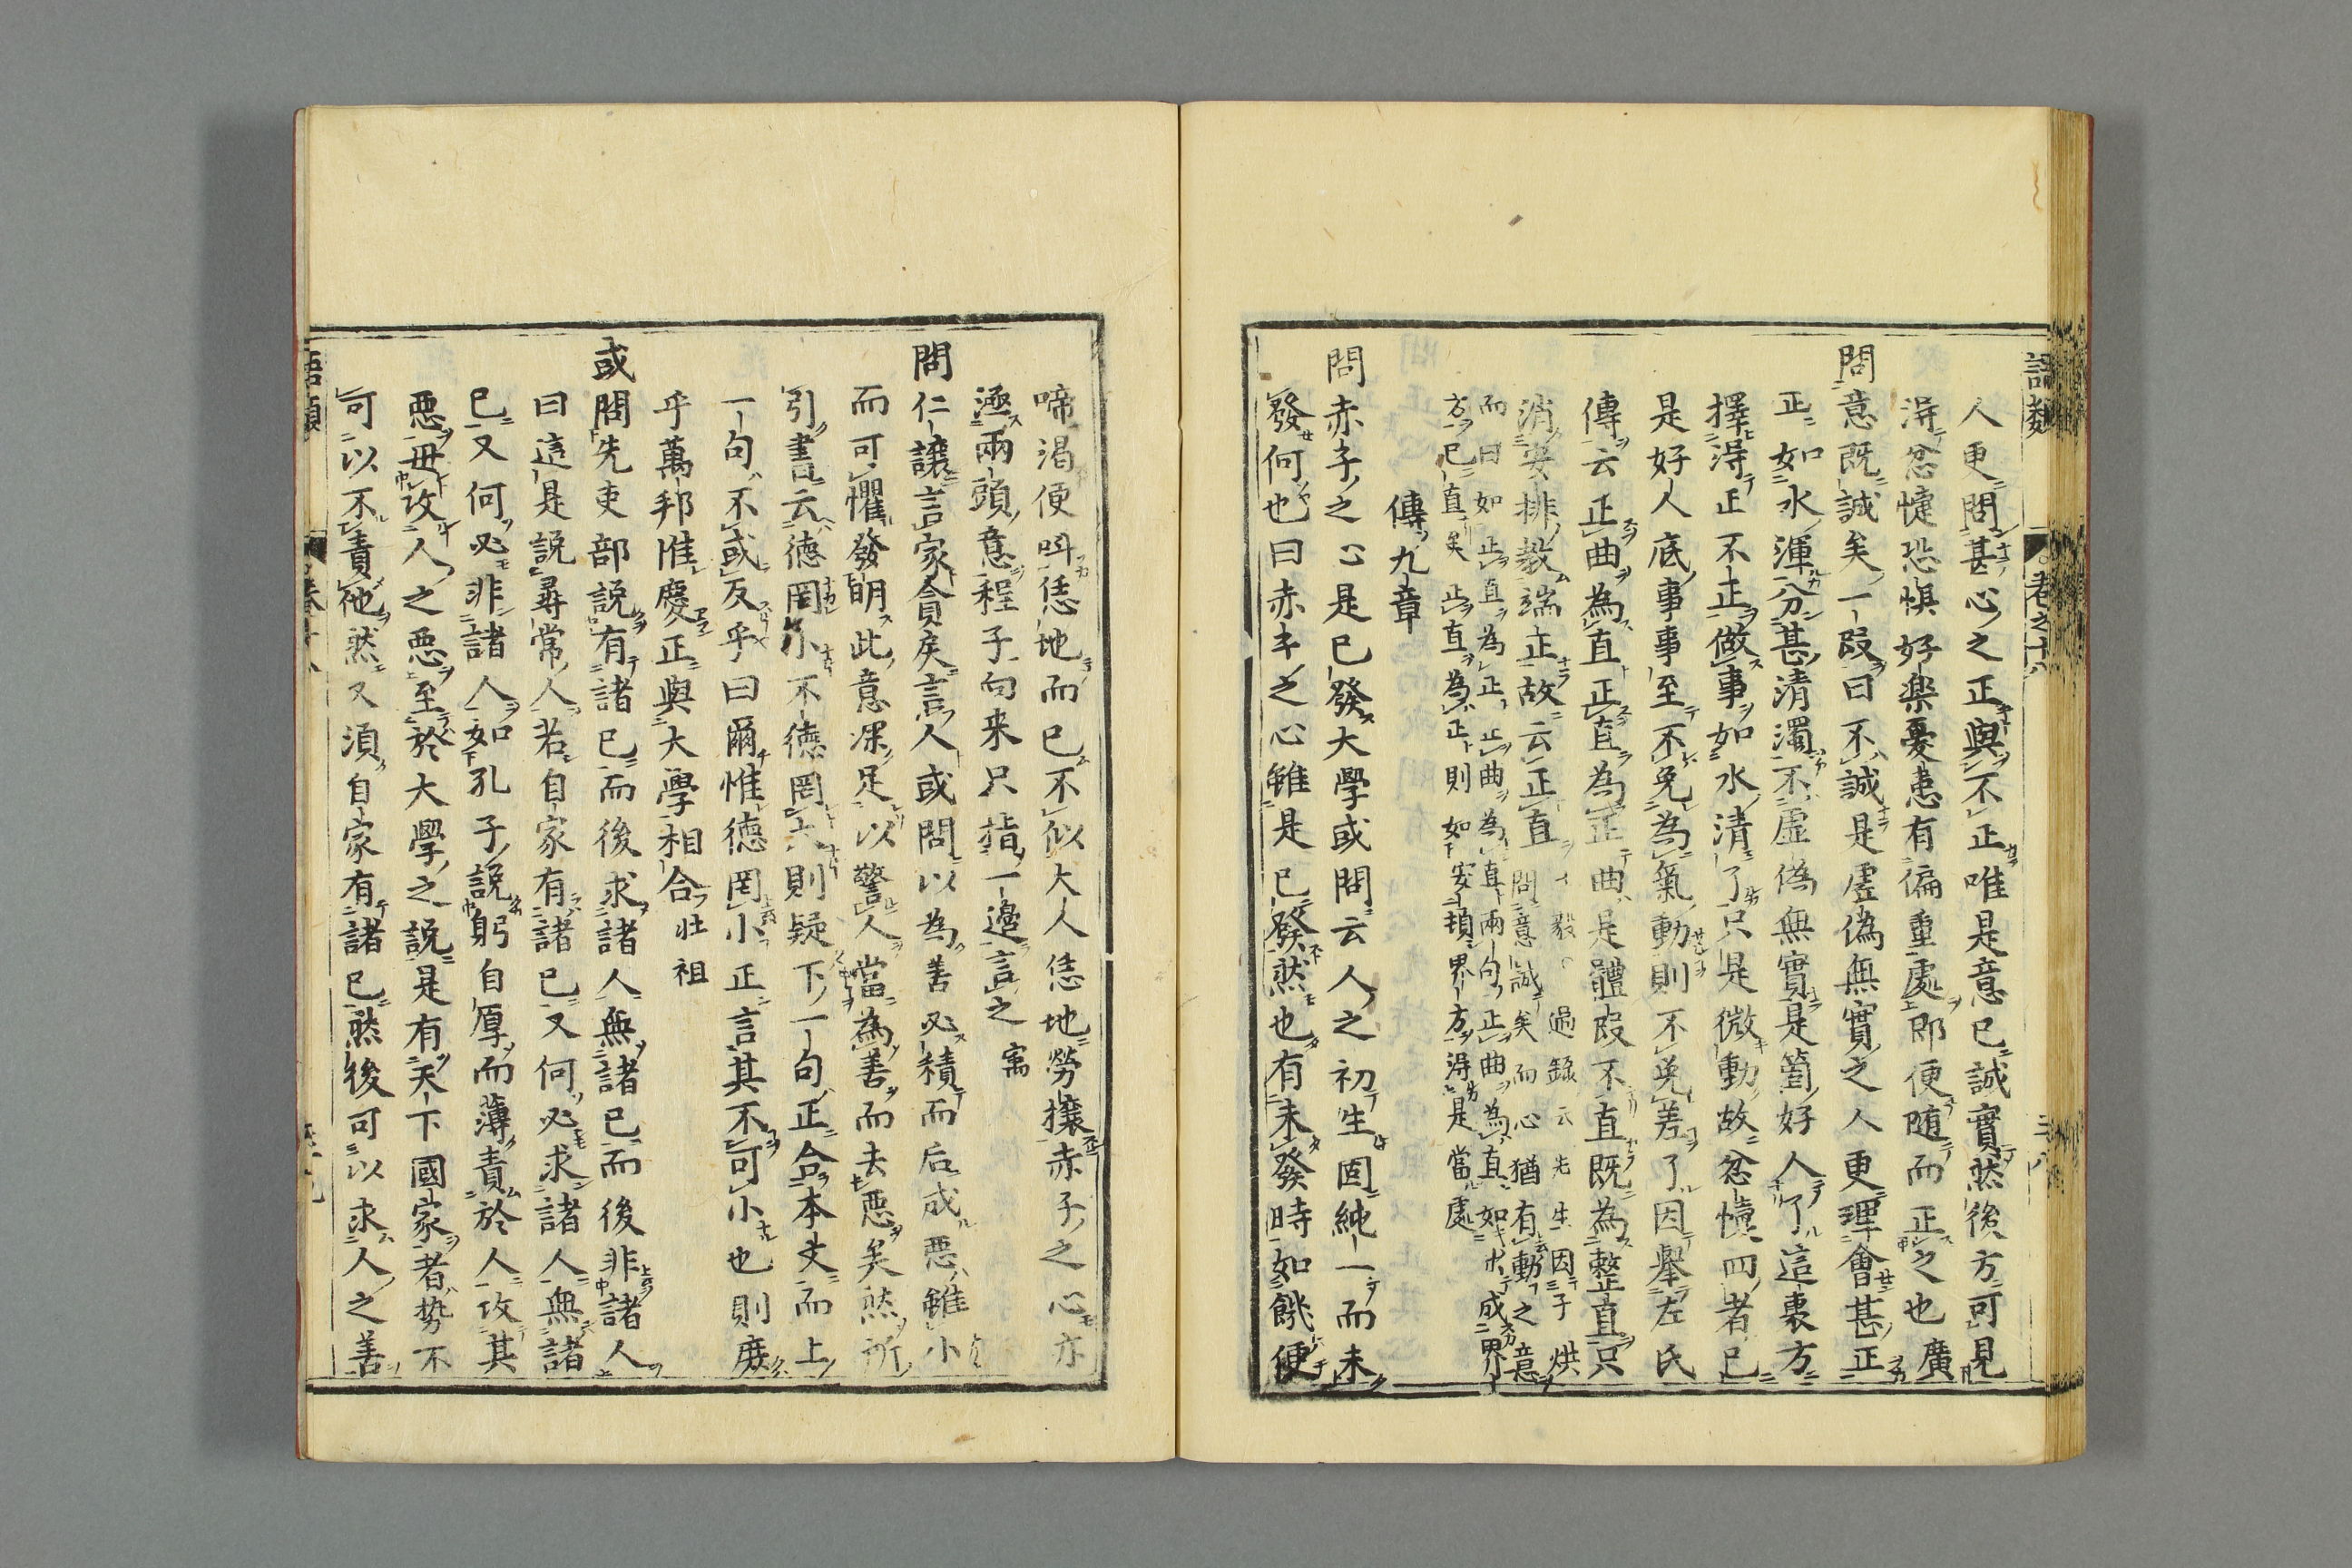 語類 卷之十八
人更問甚心之正與不正唯是意已誠實然後方可見
得忿懥恐惧好樂憂患有偏重處即便随而正之也廣
問意既誠矣一段曰不誠是虛偽無實之人更理會甚正
正如水渾分甚清濁不虛偽無實是箇好人了這裏方
擇得正不正做事如水清了只是微動故忿懥四者已
是好人底事事至不免為氣動則不免差了因舉左氏
傳云正曲為直正直為正曲是體段不直既為整直只
消安排教端正故云正直
毅 過錄云先生因子烘
問意誠矣而心猶有動之意
而曰如正直為正正曲為直兩句正曲為直如木成界
方已直矣正直為正則如安頓界方得是當處
傳九章
問赤子之心是已發大學或問云人之初生固純一而未
發何也曰赤子之心雖是已發然也有未發時如餓便
啼渴便呌恁地而已不似大人恁地勞攘赤子之心亦
涵兩頭意程子向来只指一邊言之寓
問仁讓言家貪戾言人或問以為善必積而后成惡雖小
而可懼發明此意深足以警人當為善而去惡矣然所
引書云德罔小不德罔大則疑下一句正合本文而上
一句不或反乎曰爾惟德罔小正言其不可小也則庶
乎萬邦惟慶正與大學相合壮祖
或問先吏部説有諸已而後求諸人無諸已而後非諸人
曰這是説尋常人若自家有諸已又何必求諸人無諸
已又何必非諸人如孔子説躬自厚而薄責於人攻其
惡毋攻人之惡至於大學之説是有天下國家者勢不
可以不責他然又湏自家有諸已然後可以求人之善
語類